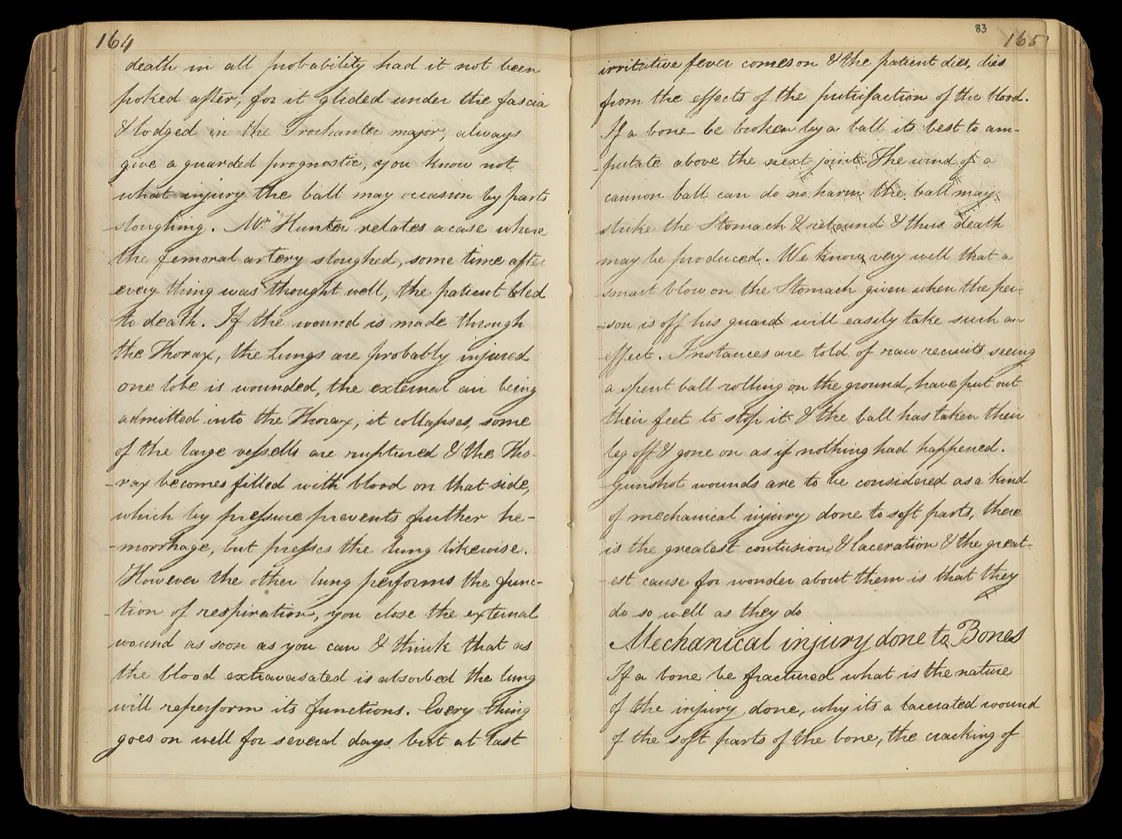 164
death in all probability had it not been
poked after, for it glided under the fascia
& lodged in the Trochanter major, always
give a guarded prognostic, you know not
what injury the ball may occasion by parts
sloughing. Mr Hunter relates a case where
the femoral artery sloughed, some time after
every thing was thought well, the patient bled
to death. If the wound is made through
the Thorax, the Lungs are probably injured
one lobe is wounded, the external air being
admitted into the Thorax, it collapses, some
of the large vessells are ruptured & the Tho-
rax becomes filled with blood on that side,
which by pressure prevents further he-
-morrhage, but presses the lung likewise.
However the other lung performs the func-
-tion of respiration, you close the external
wound as soon as you can & think that as
the blood extravasated is absorbed the lung
will reperform its functions. Every thing
goes on well for several days, but at last
83
165
irritative fever comes on & the patient dies, dies
from the effects of the putrifaction of the blood.
If a bone be broken by a ball its best to am-
-putate above the next joint. The wind of a
cannon ball can do no harm the ball may
strike the Stomach & rebound & thus death
may be produced. We know very well that a
smart blow on the Stomach given when the per-
-son is off his guard will easily take such an
effect. Instances are told of raw recruits seeing
a spent ball rolling on the ground, have put out
their feet to stop it & the ball has taken their
leg off & gone on as if nothing had happened.
Gunshot wounds are to be considered as a kind
of mechanical injury done to soft parts, there
is the greatest contusion & laceration & the great-
-est cause for wonder about them is that they
do so well as they do
Mechanical injury done to Bones
If a bone be fractured what is the nature
of the injury done, why its a lacerated wound
of the soft parts of the bone, the cracking of